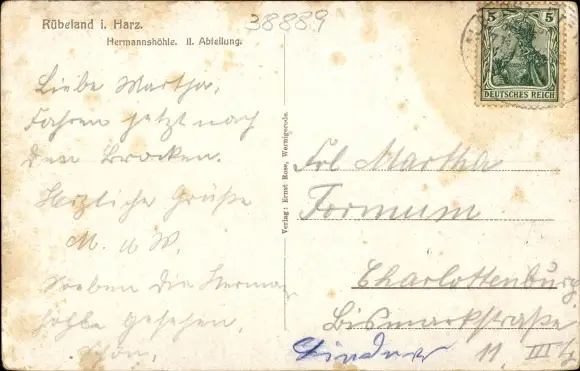 Rübeland i. Harz.
Hermannshöhle. II. Abteilung.
38889
5 5
DEUTSCHES REICH
Liebe Martha,
Fahren jetzt nach
dem Brocken.
Herzliche Grüße
M. u W.
Soeben die Herman
höhle gesehen,
Schön,
Verlag: Ernst Rose, Wernigerode.
Frl Martha
Formum
Charlottenburg.
Bismarkstraße
11 III